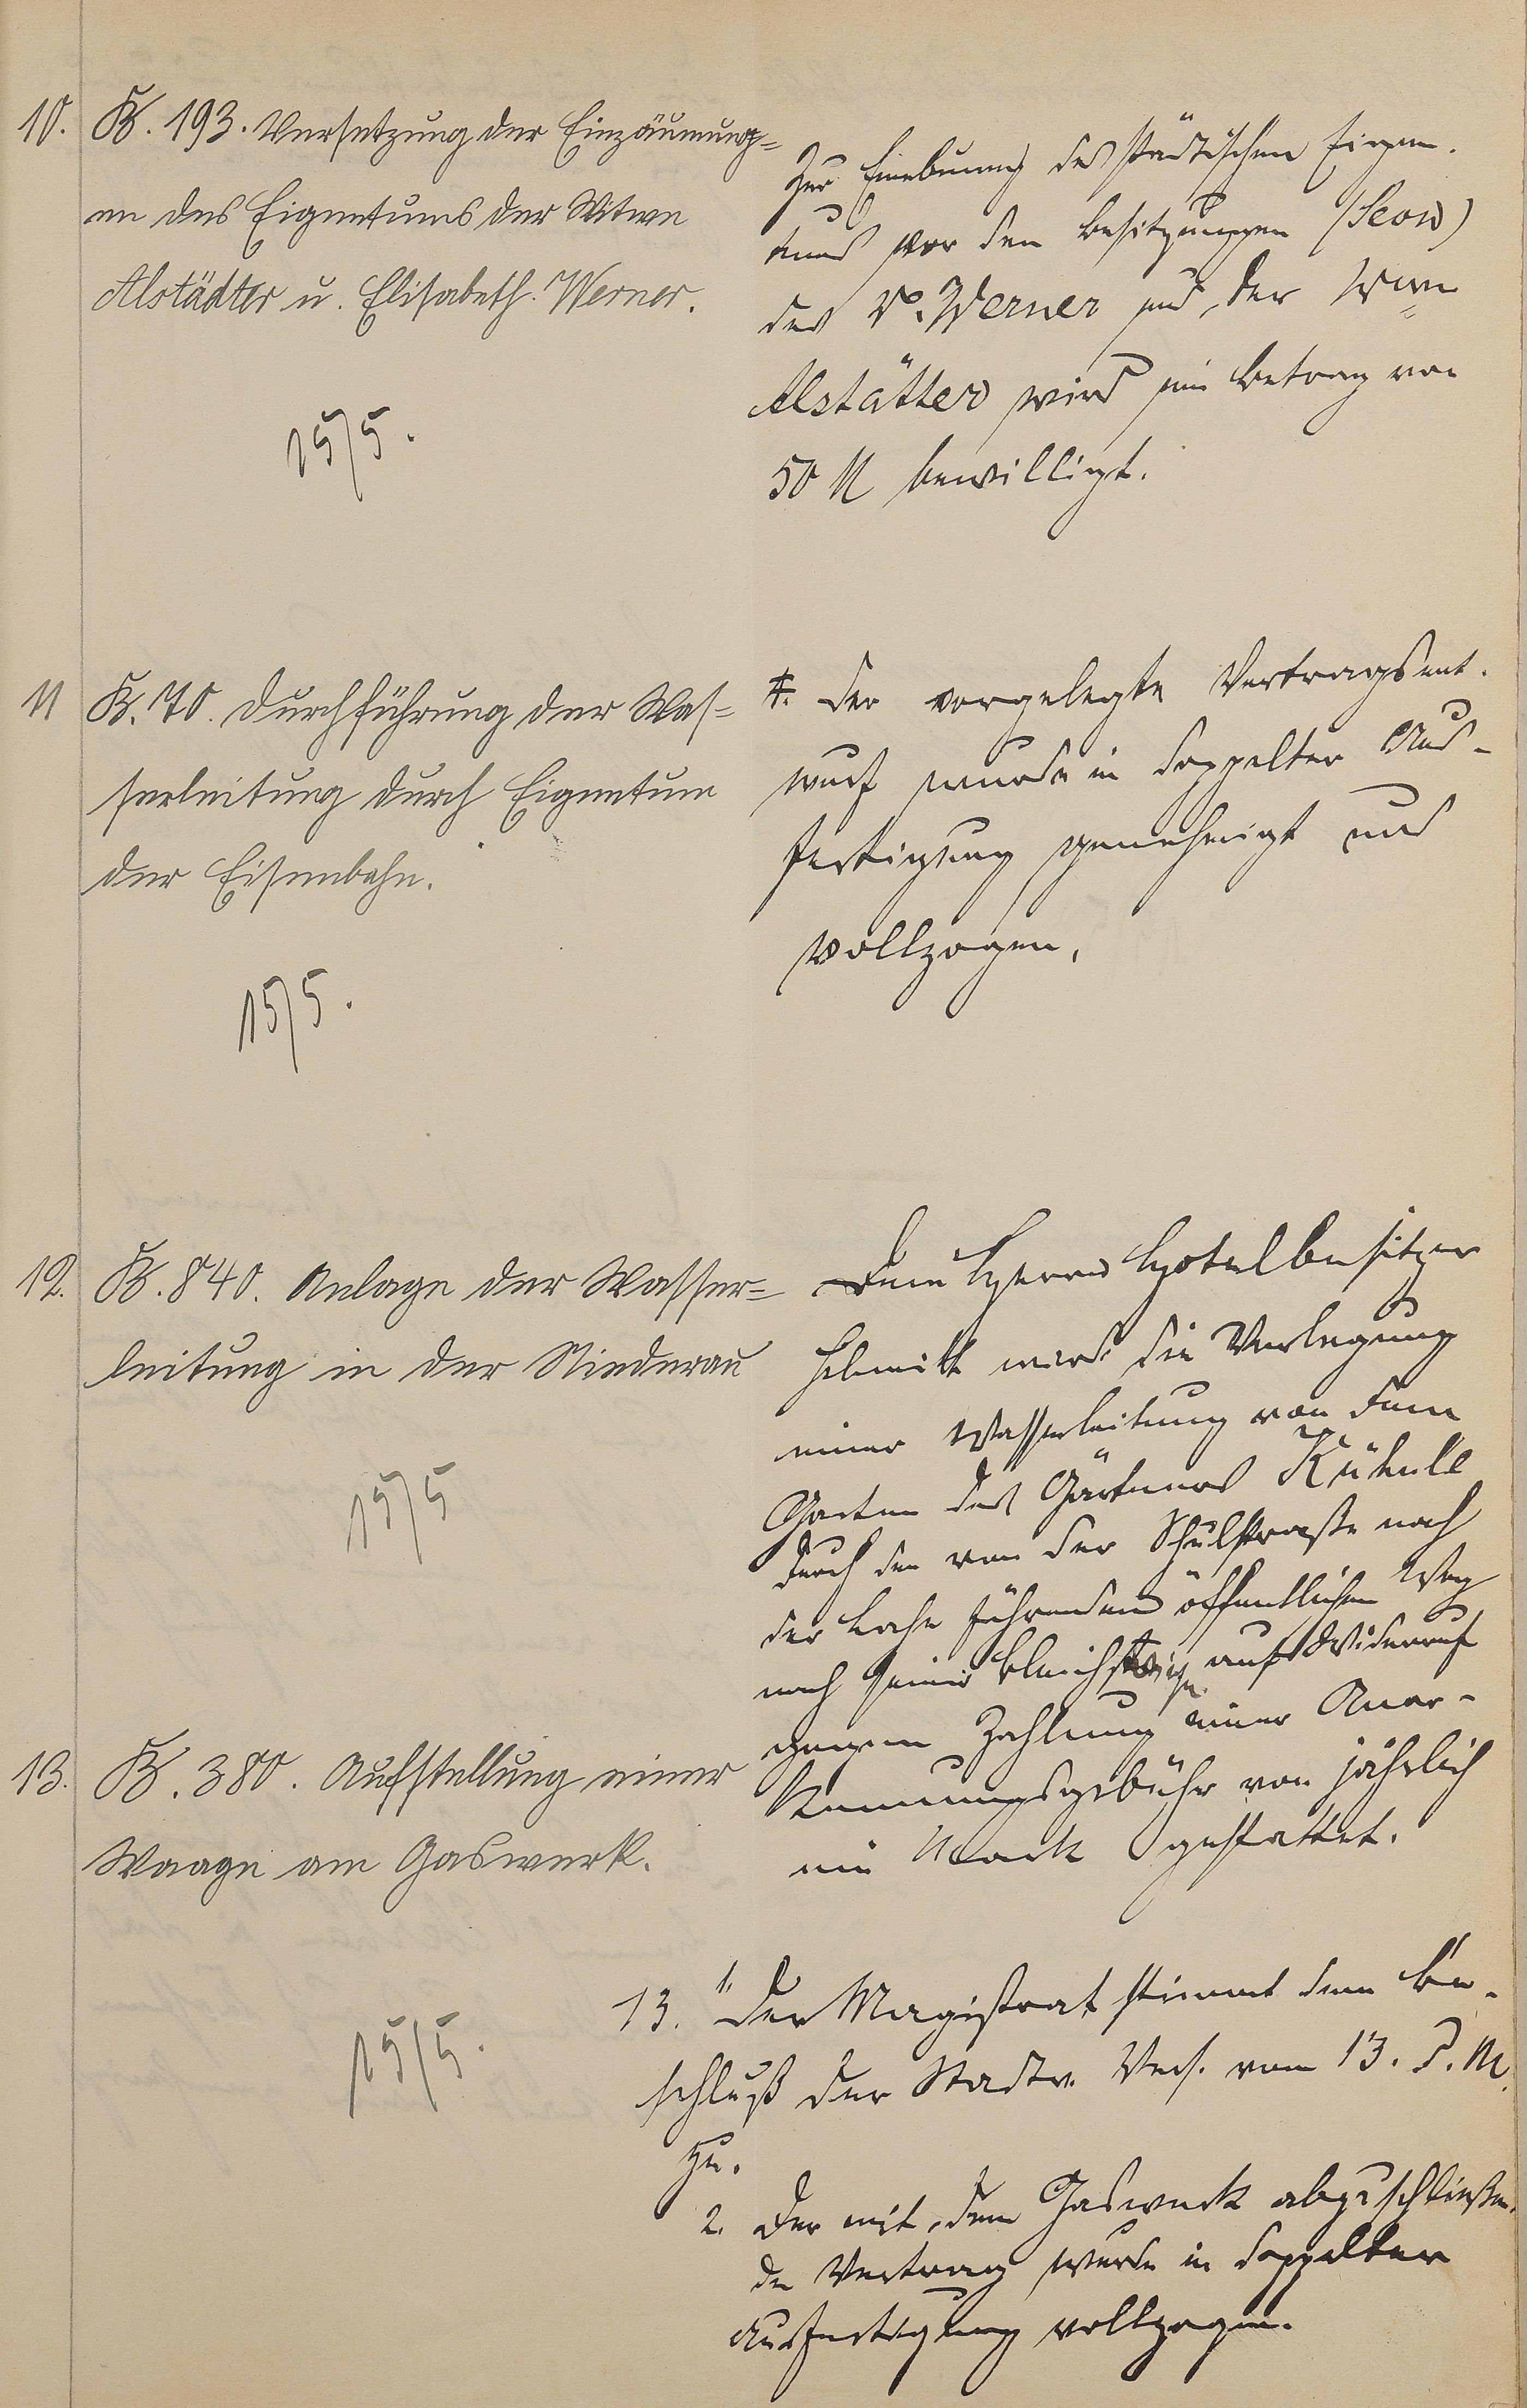 10. B. 193. Versetzung der Einzäunung=
en des Eigentums der Witwe
Alstädter u. Elisabeth. Werner.
15/5.
Zur Einebnung des städtischen Eigen-
tums vor den Besitzungen
des V. Werner und der Wwe
Alstätter wird ein Betrag von
50 M bewilligt.
11 B. 70. Durchführung der Was=
serleitung durch Eigentum
der Eisenbahn.
15/5.
Der vorgelegte Vertragsent-
wurf wurde in doppelter Aus-
fertigung genehmigt und
vollzogen.
12. B. 840. Anlage der Wasser=
leitung in der Niederau
15/5
Dem Herrn Hotelbesitzer
Schmitt wird die Verlegung
einer Wasserleitung von dem
Garten des Gärtners
durch den von der Schulstraße nach
der Lahn führenden öffentlichen Weg
nach seiner auf Widerruf
gegen Zahlung einer Aner-
kennungsgebühr von jährlich
ein Mark gestattet.
13. B. 380. Aufstellung einer
Waage am Gaswerk.
15/5.
13. 1. Der Magistrat stimmt dem Be-
schluß der Stadtv. Vers. vom 13. d. M.
zu.
2. Der mit dem Gaswerk abzuschließen-
de Vertrag wurde in doppelter
Ausfertigung vollzogen.